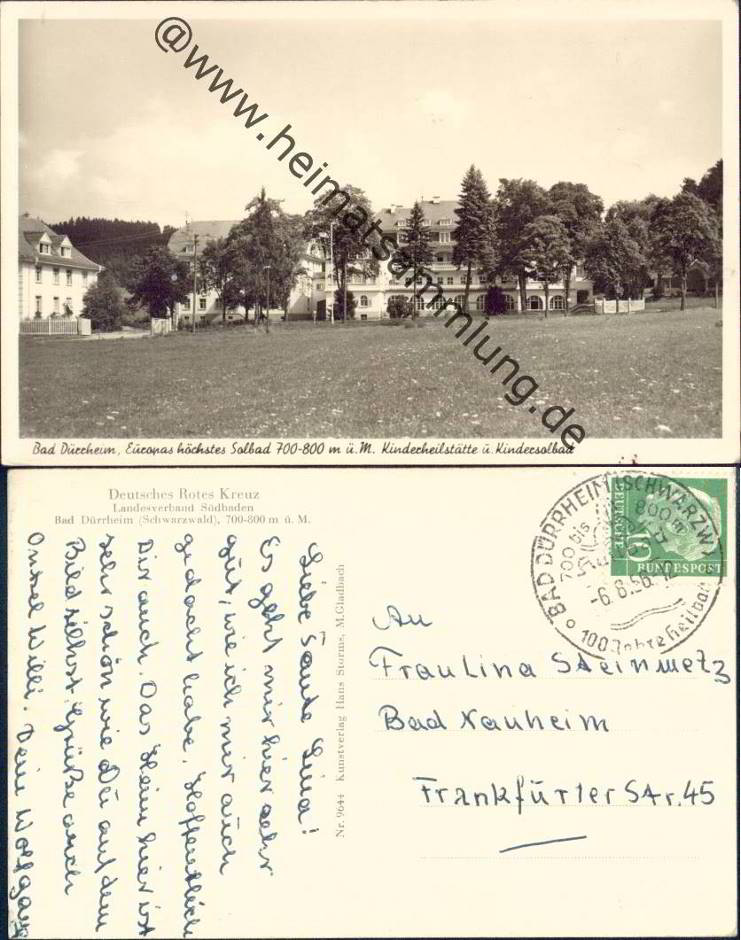 @www.heimatsammlung.de
Bad Dürrheim, Europas höchstes Solbad 700-800 m ü.M. Kinderheilstätte u. Kindersolbad
Deutsches Rotes Kreuz
Landesverband Südbaden
Bad Dürrheim (Schwarzwald), 700-800 m ü. M.
Liebe Tante Lina!
Es geht mir hier sehr
gut, wie ich mir auch
gedacht habe. Hoffentlich
Dir auch. Das Heim hier ist
sehr schön wie Du auf dem
Bild siehst. Grüße auch
Onkel Willi. Dein Wolfgang
Nr. 9644 Kunstverlag Hans Storms, M.Gladbach
BAD DÜRRHEIM (SCHWARZW)
700 bis
800 m
-6.8.56
100 Jahre Heilbad
DEUTSCHE
BUNDESPOST
An
Frau Lina Steinmetz
Bad Nauheim
Frankfurter Str. 45